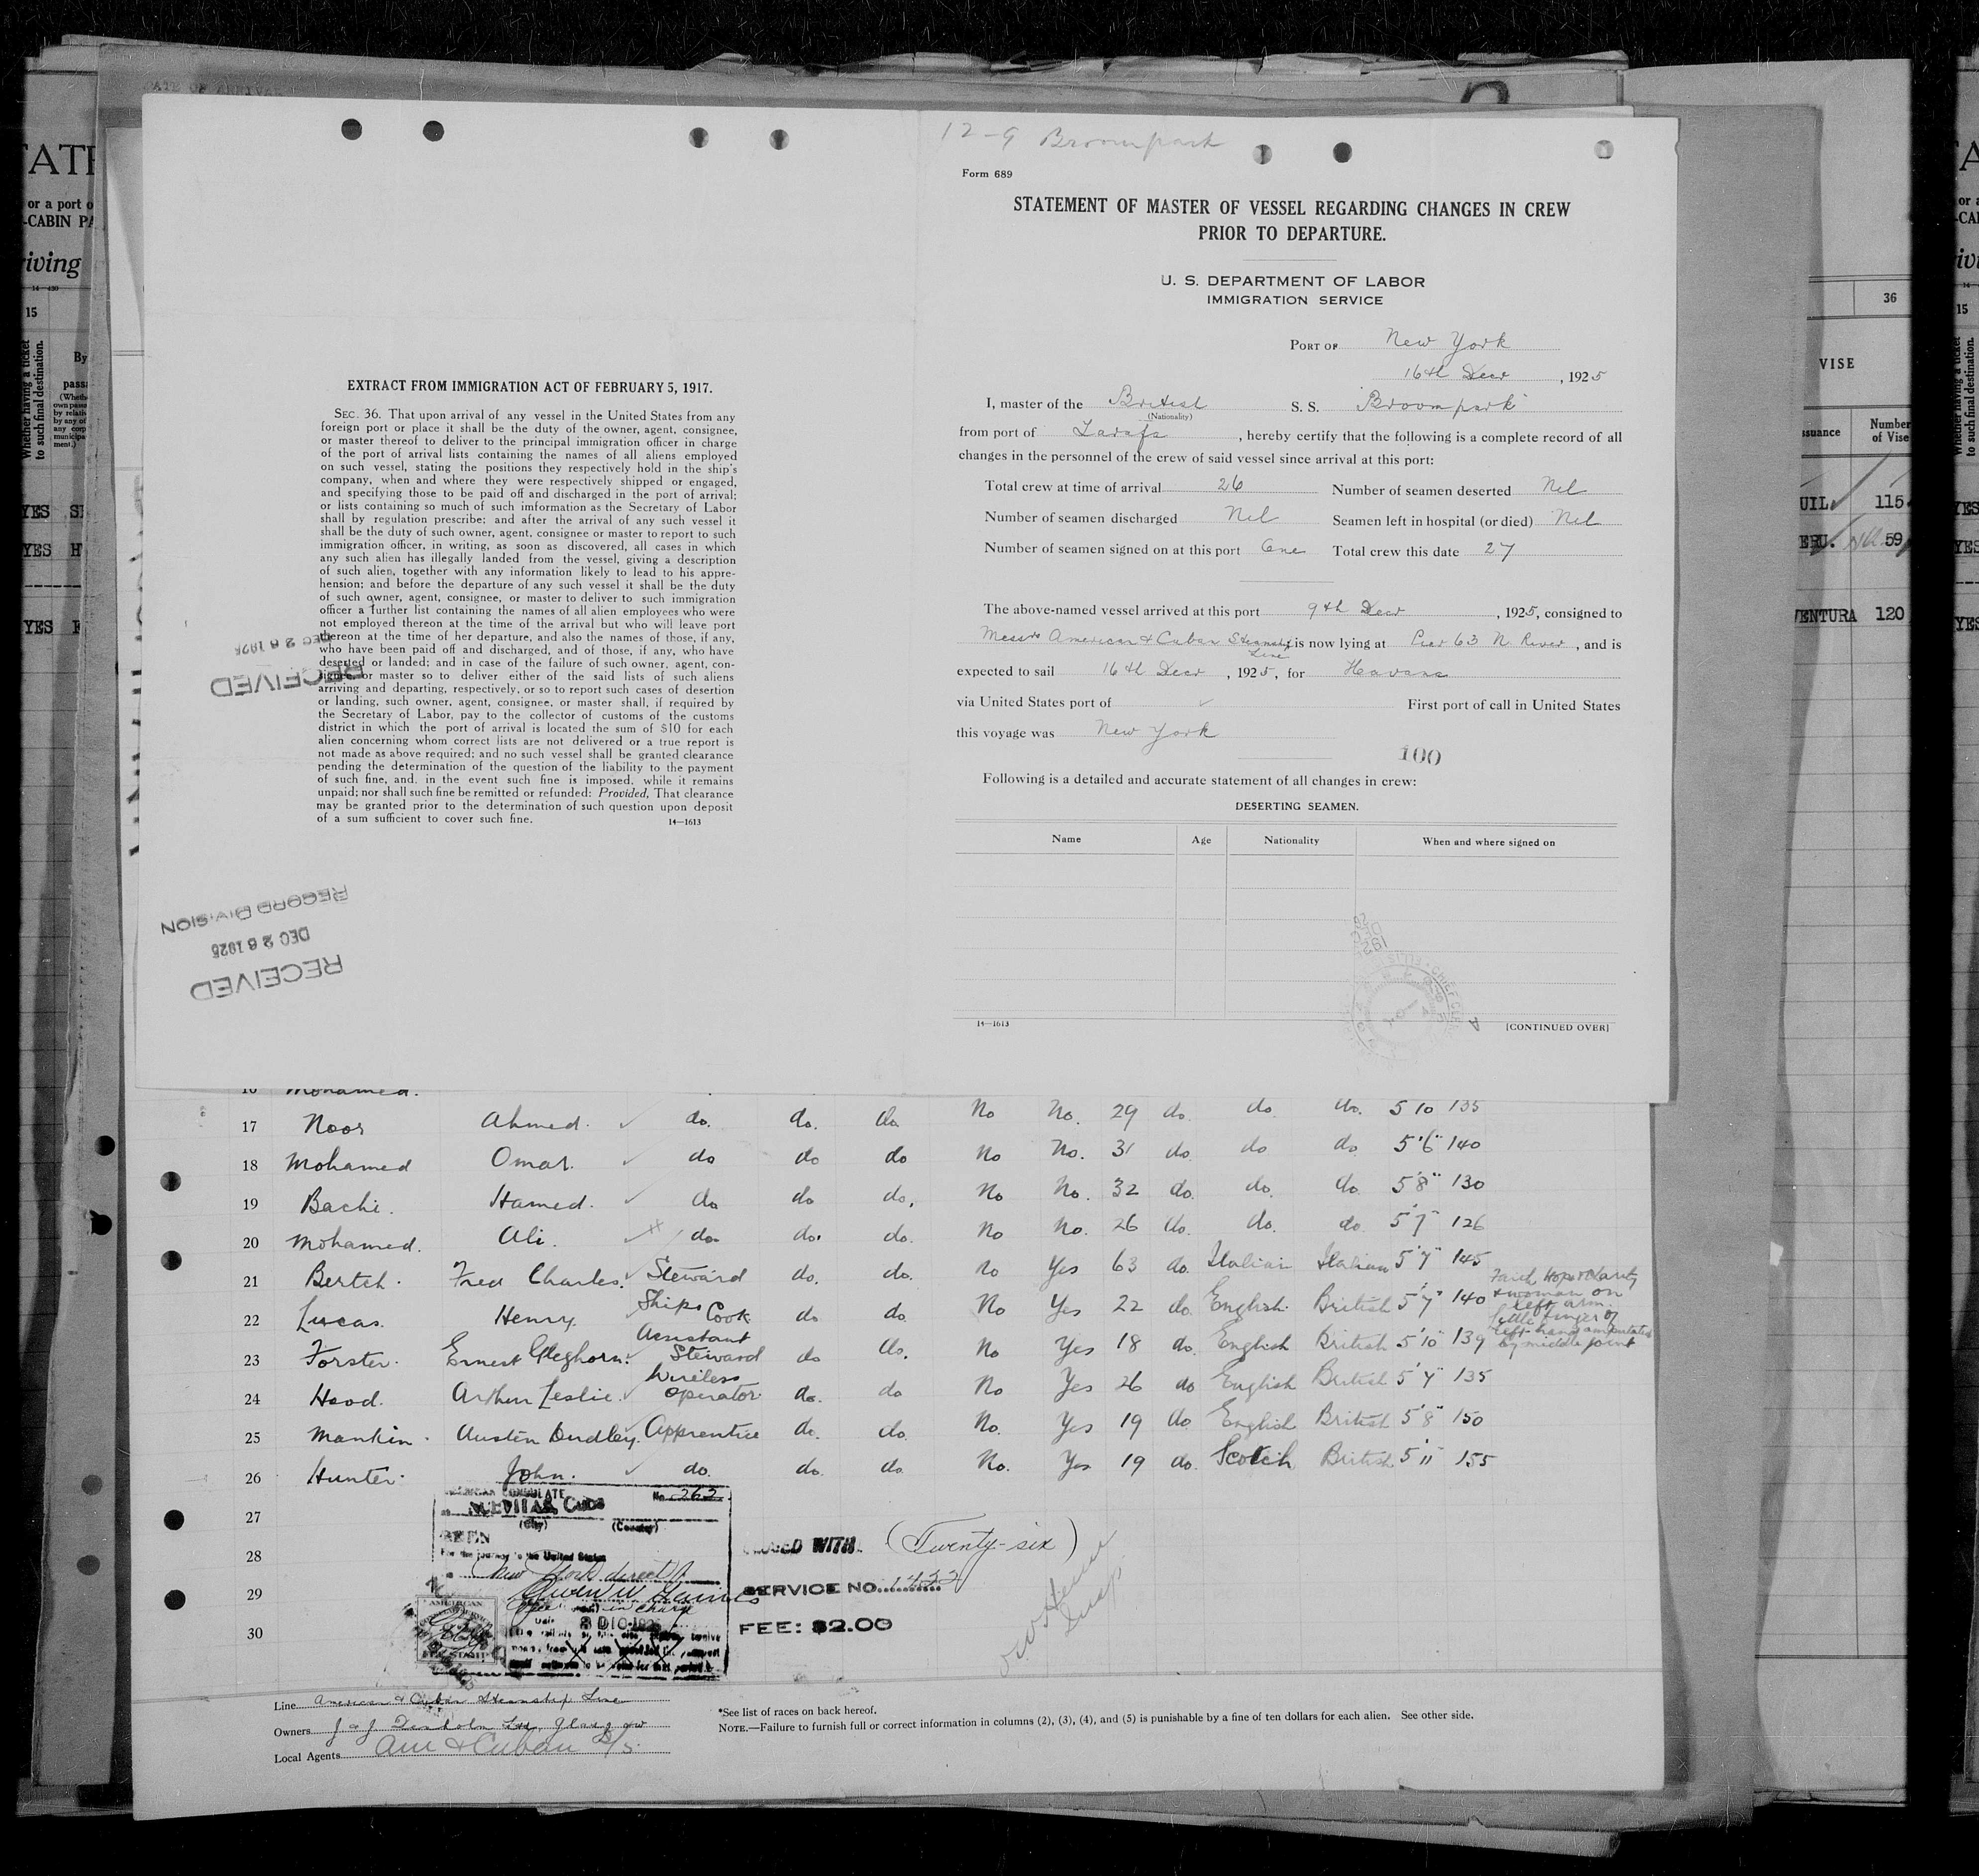 12-9 Broompark
Form 689
STATEMENT OF MASTER OF VESSEL REGARDING CHANGES IN CREW
PRIOR TO DEPARTURE.
U. S. DEPARTMENT OF LABOR
IMMIGRATION SERVICE
PORT OF New York
16th Decr, 1925
I, master of the British S. S. Broompark
(Nationality)
from port of Tarafa, hereby certify that the following is a complete record of all
changes in the personnel of the crew of said vessel since arrival at this port:
Total crew at time of arrival 26 Number of seamen deserted Nil
Number of seamen discharged Nil Seamen left in hospital (or died) Nil
Number of seamen signed on at this port One Total crew this date 27
The above-named vessel arrived at this port 9th Decr, 1925, consigned to
Messrs American & Cuban Steamship Line is now lying at Pier 63 N. River, and is
expected to sail 16th Decr, 1925, for Havana
via United States port of First port of call in United States
this voyage was New York
100
Following is a detailed and accurate statement of all changes in crew:
DESERTING SEAMEN.
Name Age Nationality When and where signed on
14—1613 [CONTINUED OVER]
EXTRACT FROM IMMIGRATION ACT OF FEBRUARY 5, 1917.
SEC. 36. That upon arrival of any vessel in the United States from any
foreign port or place it shall be the duty of the owner, agent, consignee,
or master thereof to deliver to the principal immigration officer in charge
of the port of arrival lists containing the names of all aliens employed
on such vessel, stating the positions they respectively hold in the ship's
company, when and where they were respectively shipped or engaged,
and specifying those to be paid off and discharged in the port of arrival;
or lists containing so much of such imformation as the Secretary of Labor
shall by regulation prescribe; and after the arrival of any such vessel it
shall be the duty of such owner, agent, consignee or master to report to such
immigration officer, in writing, as soon as discovered, all cases in which
any such alien has illegally landed from the vessel, giving a description
of such alien, together with any information likely to lead to his appre-
hension; and before the departure of any such vessel it shall be the duty
of such owner, agent, consignee, or master to deliver to such immigration
officer a further list containing the names of all alien employees who were
not employed thereon at the time of the arrival but who will leave port
thereon at the time of her departure, and also the names of those, if any,
who have been paid off and discharged, and of those, if any, who have
deserted or landed; and in case of the failure of such owner, agent, con-
signee, or master so to deliver either of the said lists of such aliens
arriving and departing, respectively, or so to report such cases of desertion
or landing, such owner, agent, consignee, or master shall, if required by
the Secretary of Labor, pay to the collector of customs of the customs
district in which the port of arrival is located the sum of $10 for each
alien concerning whom correct lists are not delivered or a true report is
not made as above required; and no such vessel shall be granted clearance
pending the determination of the question of the liability to the payment
of such fine, and, in the event such fine is imposed, while it remains
unpaid; nor shall such fine be remitted or refunded: Provided, That clearance
may be granted prior to the determination of such question upon deposit
of a sum sufficient to cover such fine. 14—1613
RECEIVED
DEC 28 1925
RECORD DIVISION
DEC 28 1925
RECEIVED
16 Mohamed.
17 Noor Ahmed. do. do. do No No. 29 do. do. do. 5 10 135
18 Mohamed Omar. do do do No No. 31 do. do do 5'6" 140
19 Bachi. Hamed. do do do. No No. 32 do. do. do. 5'8" 130
20 Mohamed. Ali. do do. do. No No. 26 do. do. do 5'7" 126
21 Bertch. Fred Charles. Steward do. do. No Yes 63 do. Italian Italian 5'7" 145
22 Lucas. Henry Ships Cook do do. No Yes 22 do. English British 5'7" 140 Faith Hope & Charity & woman on left arm.
23 Forster. Ernest Gleghorn. Assistant Steward do do. No Yes 18 do. English British 5'10" 139 Little finger of left hand amputated by middle joint
24 Hood. Arthur Leslie. Wireless operator do. do No Yes 26 do English British 5'7" 135
25 Mankin. Austen Dudley. Apprentice do. do. No. Yes 19 do English British 5'8" 150
26 Hunter. John. do. do. do. No. Yes 19 do. Scotch British 5'11 155
27
28
29
30
AMERICAN CONSULATE No. 262
NUEVITAS, CUBA
(City) (Country)
SEEN
For the journey to the United States
New York direct
(Twenty-six)
SERVICE NO. 1422
FEE: $2.00
Line American & Cuban Steamship Line
Owners J & J Denholm Ltd, Glasgow
Local Agents Am & Cuban S/S.
*See list of races on back hereof.
NOTE.—Failure to furnish full or correct information in columns (2), (3), (4), and (5) is punishable by a fine of ten dollars for each alien. See other side.
or a port o
-CABIN PA
15
Whether having a ticket
to such final destination.
By
YES
YES
YES
36
VISE
Number
of Vise
115
59
VENTURA 120